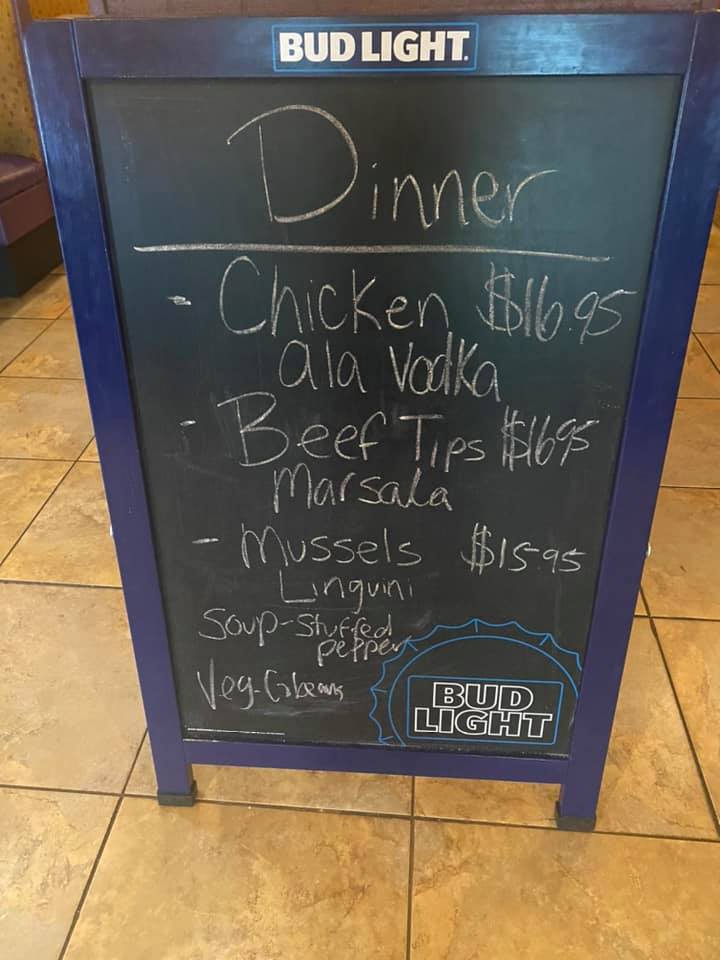 BUD LIGHT.
Dinner
- Chicken $16.95
ala Vodka
- Beef Tips $16.95
Marsala
- Mussels $15.95
Linguini
Soup-Stuffed
pepper
Veg-Gbeans
BUD
LIGHT